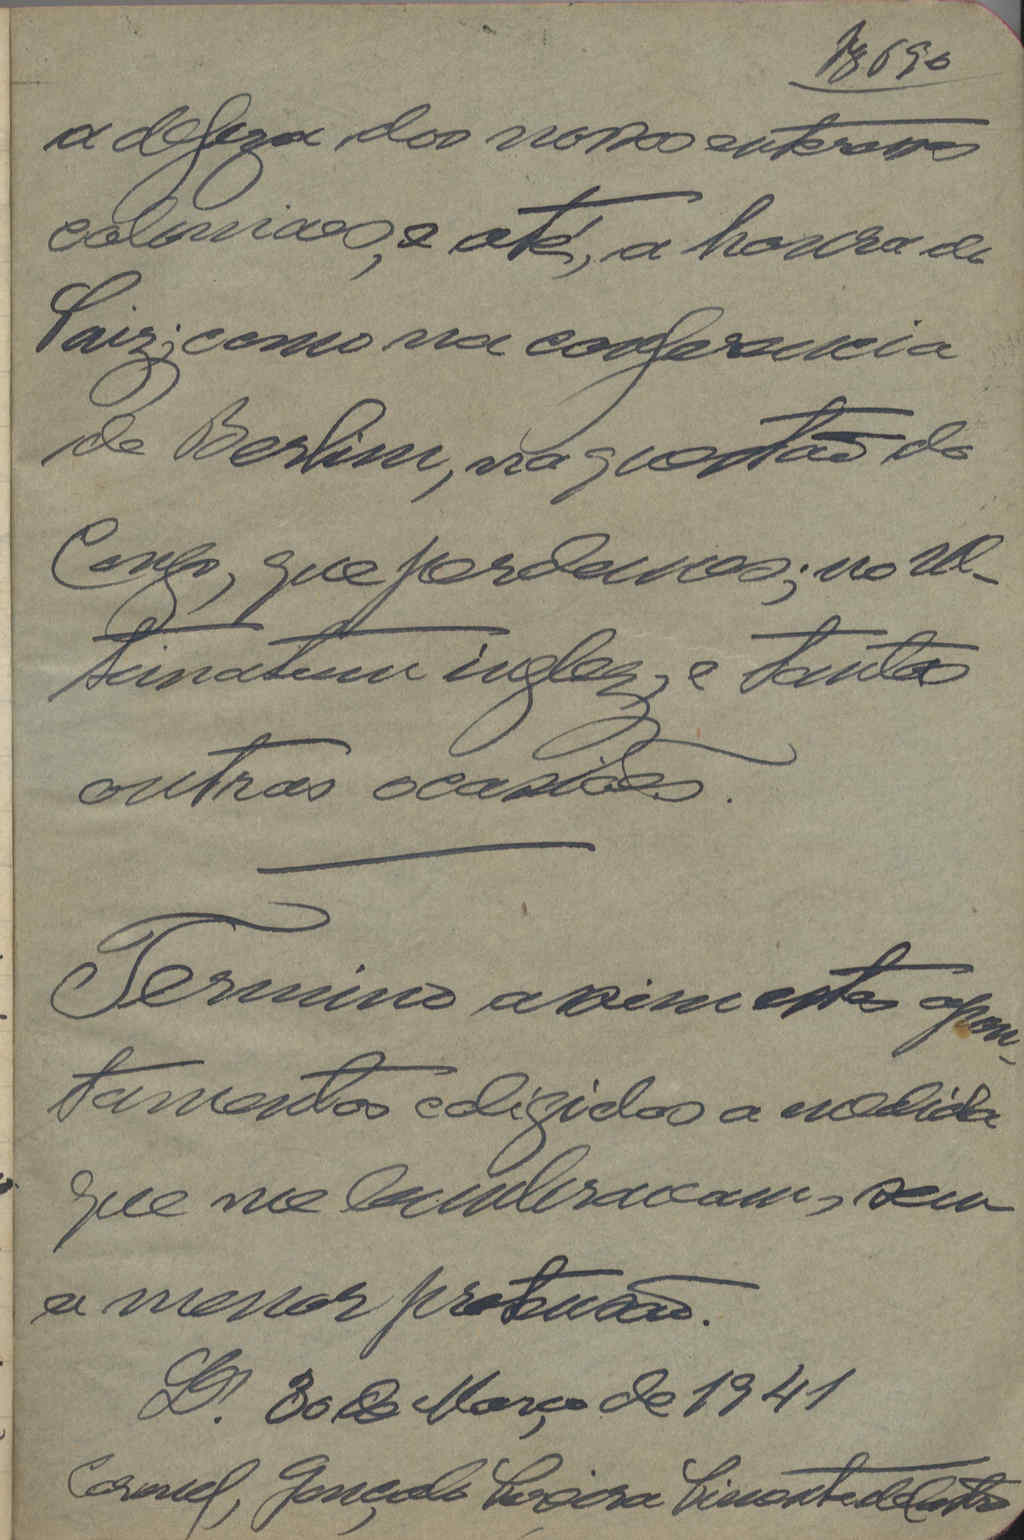 a defeza dos nossos enteresses
coloniaes, e até, a honra do
Paiz; como na conferencia
de Berlim, na questão do
Congo, que perdemos; no Ul-
timatum inglez, e tantas
outras ocasiões.
Termino assim estes apon-
tamentos coligidos a medida
que me lembravam, sem
a menor pretensão.
Lx. 30 de Março de 1941
Coronel, Gonçalo Pereira Pimenta de Castro